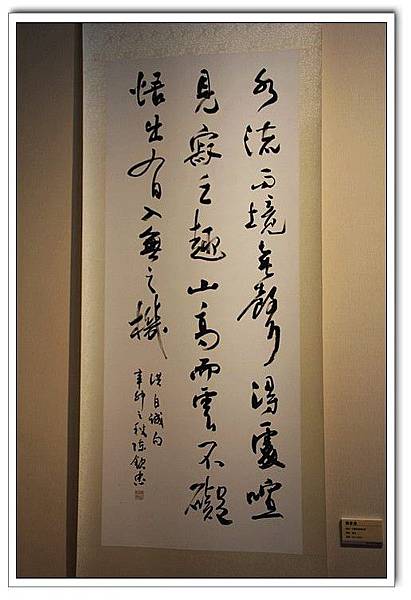 水流而境無聲得處喧
見寂之趣山高而雲不礙
悟出有入無之機
洪自誠句
辛卯之秋陳欽忠